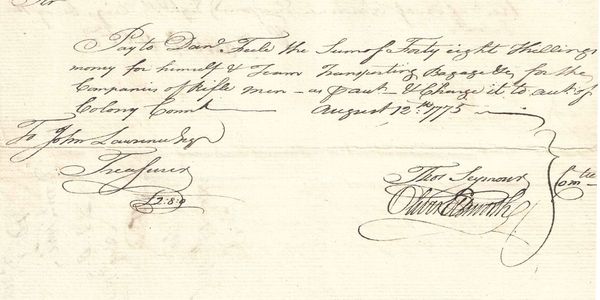 Sir
Pay to Danl. Teele the Sum of Forty eight Shillings
money for himself & Team Transporting Bagage &c for the
Companies of Rifle men – as pr acct – & Charge it to acct of
Colony Connt August 12th 1775
To John Lawrence Esqr
Treasurer
£2:8:0
Thos Seymour
Oliver Ellsworth
Comtte